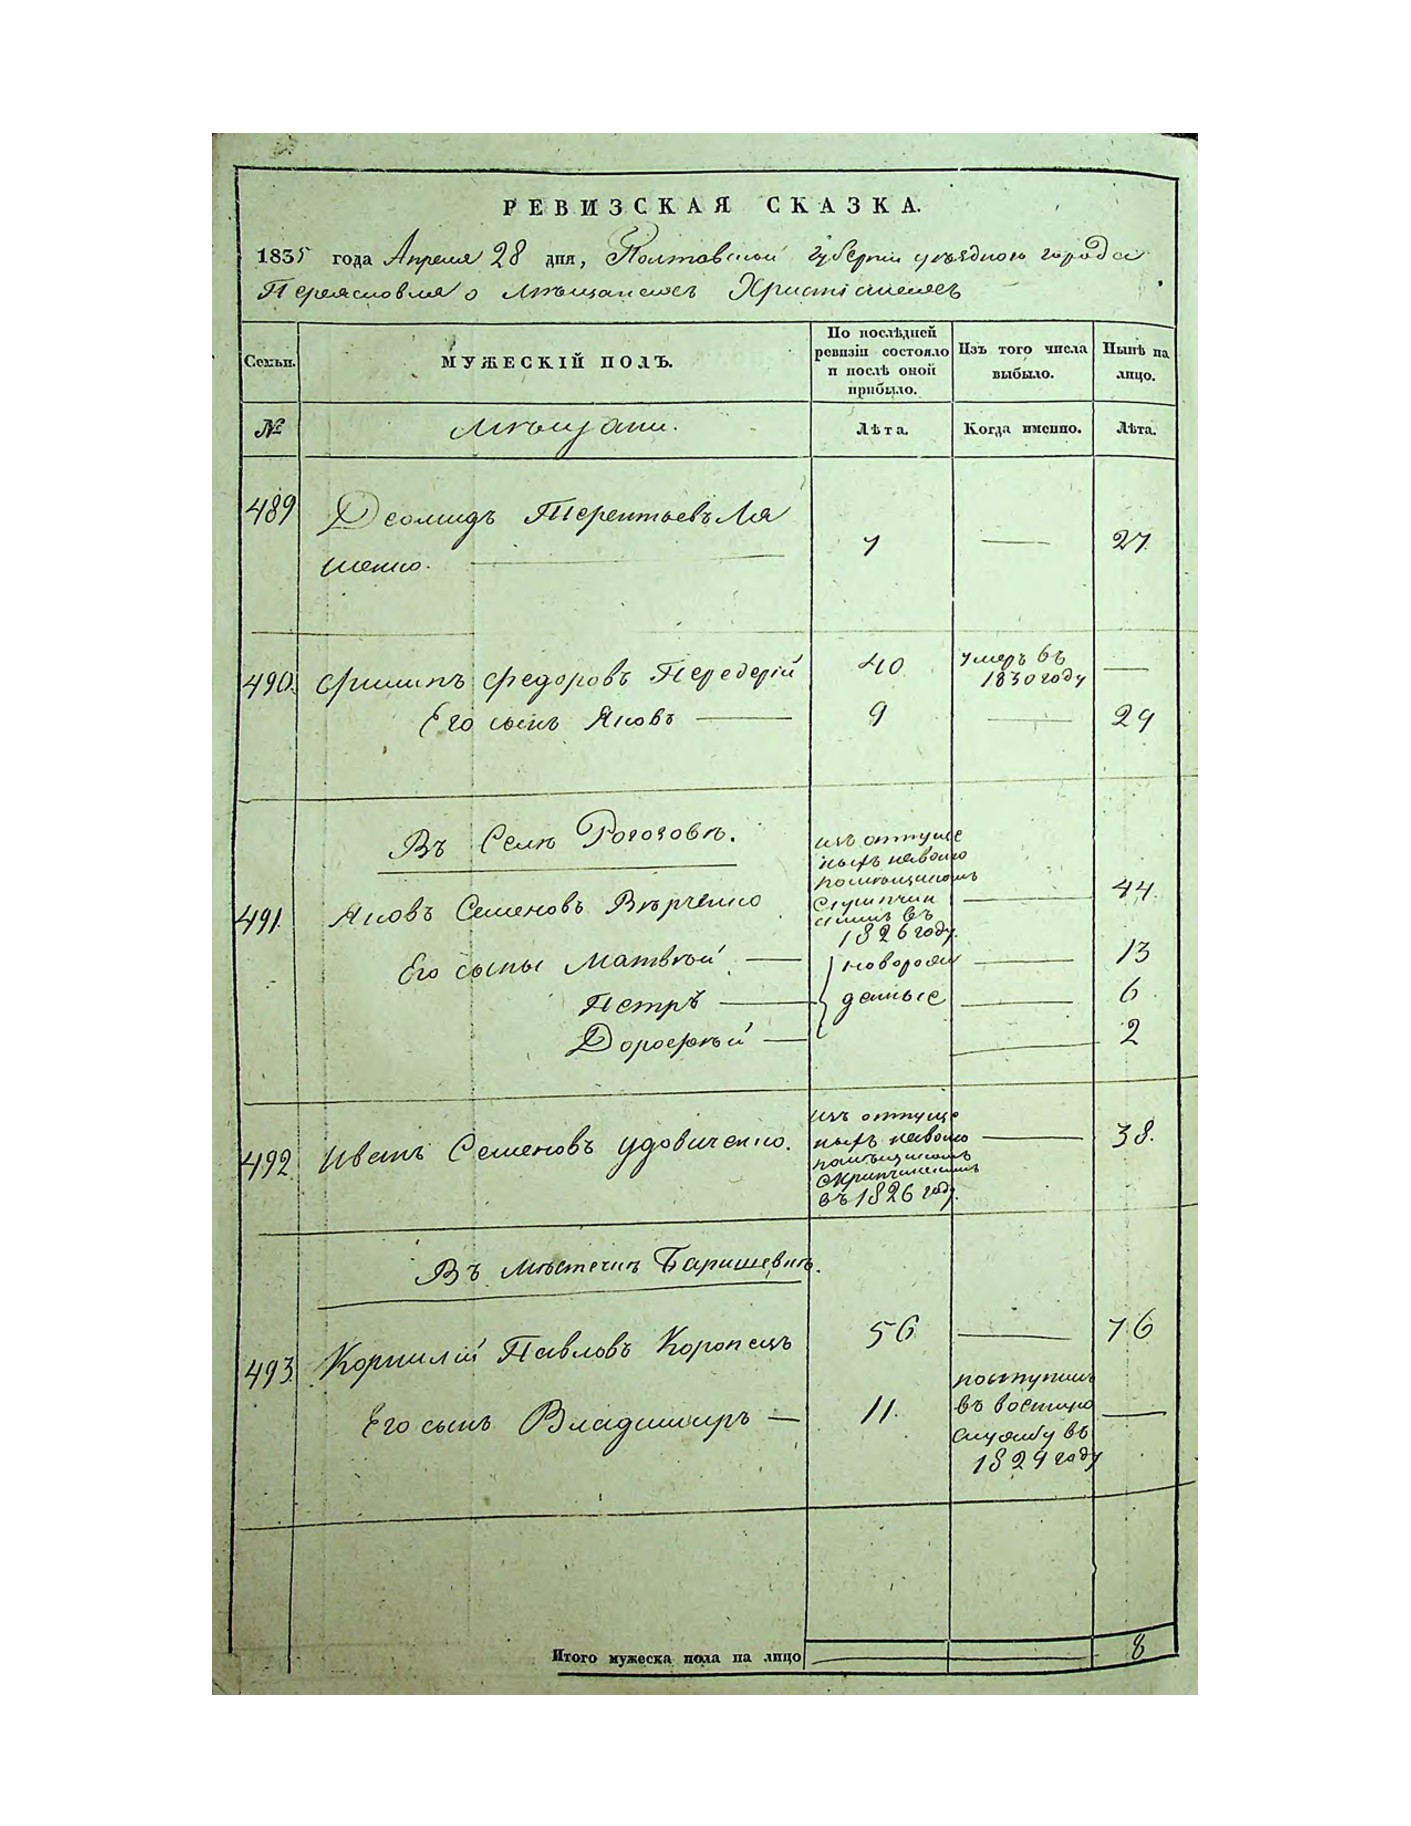 РЕВИЗСКАЯ СКАЗКА.
1835 года Апреля 28 дня, Полтавской губернии уѣзднаго города
Переяславля о мѣщанахъ Христіанахъ
Семьи. МУЖЕСКІЙ ПОЛЪ. По послѣдней ревизіи состояло и послѣ оной прибыло. Изъ того числа выбыло. Нынѣ на лицо.
№ Мѣщани. Лѣта. Когда именно. Лѣта.
489 Деомидъ Терентьевъ Ля
шенко. 7 — 27
490. Филипъ Федоровъ Передерій 40 умеръ въ 1830 году —
Его сынъ Яковъ — 9 — 29
Въ Селѣ Рогозовѣ.
491. Яковъ Семеновъ Вѣрченко изъ отпуще
ныхъ наволю
помѣщикомъ
въ
1826 году. — 44.
Его сыны Матвѣй — новорож — 13
Петръ — денные — 6
Дорофѣй — — 2
492 Иванъ Семеновъ Удовиченко. изъ отпуще
ныхъ наволю
помѣщикомъ
въ 1826 году. — 38.
Въ мѣстечкѣ Баришевкѣ.
493. Корнилій Павловъ Коропецъ 56 — 76
Его сынъ Владимиръ — 11. поступилъ
въ воетную
службу въ
1829 году —
Итого мужеска пола на лицо — 8